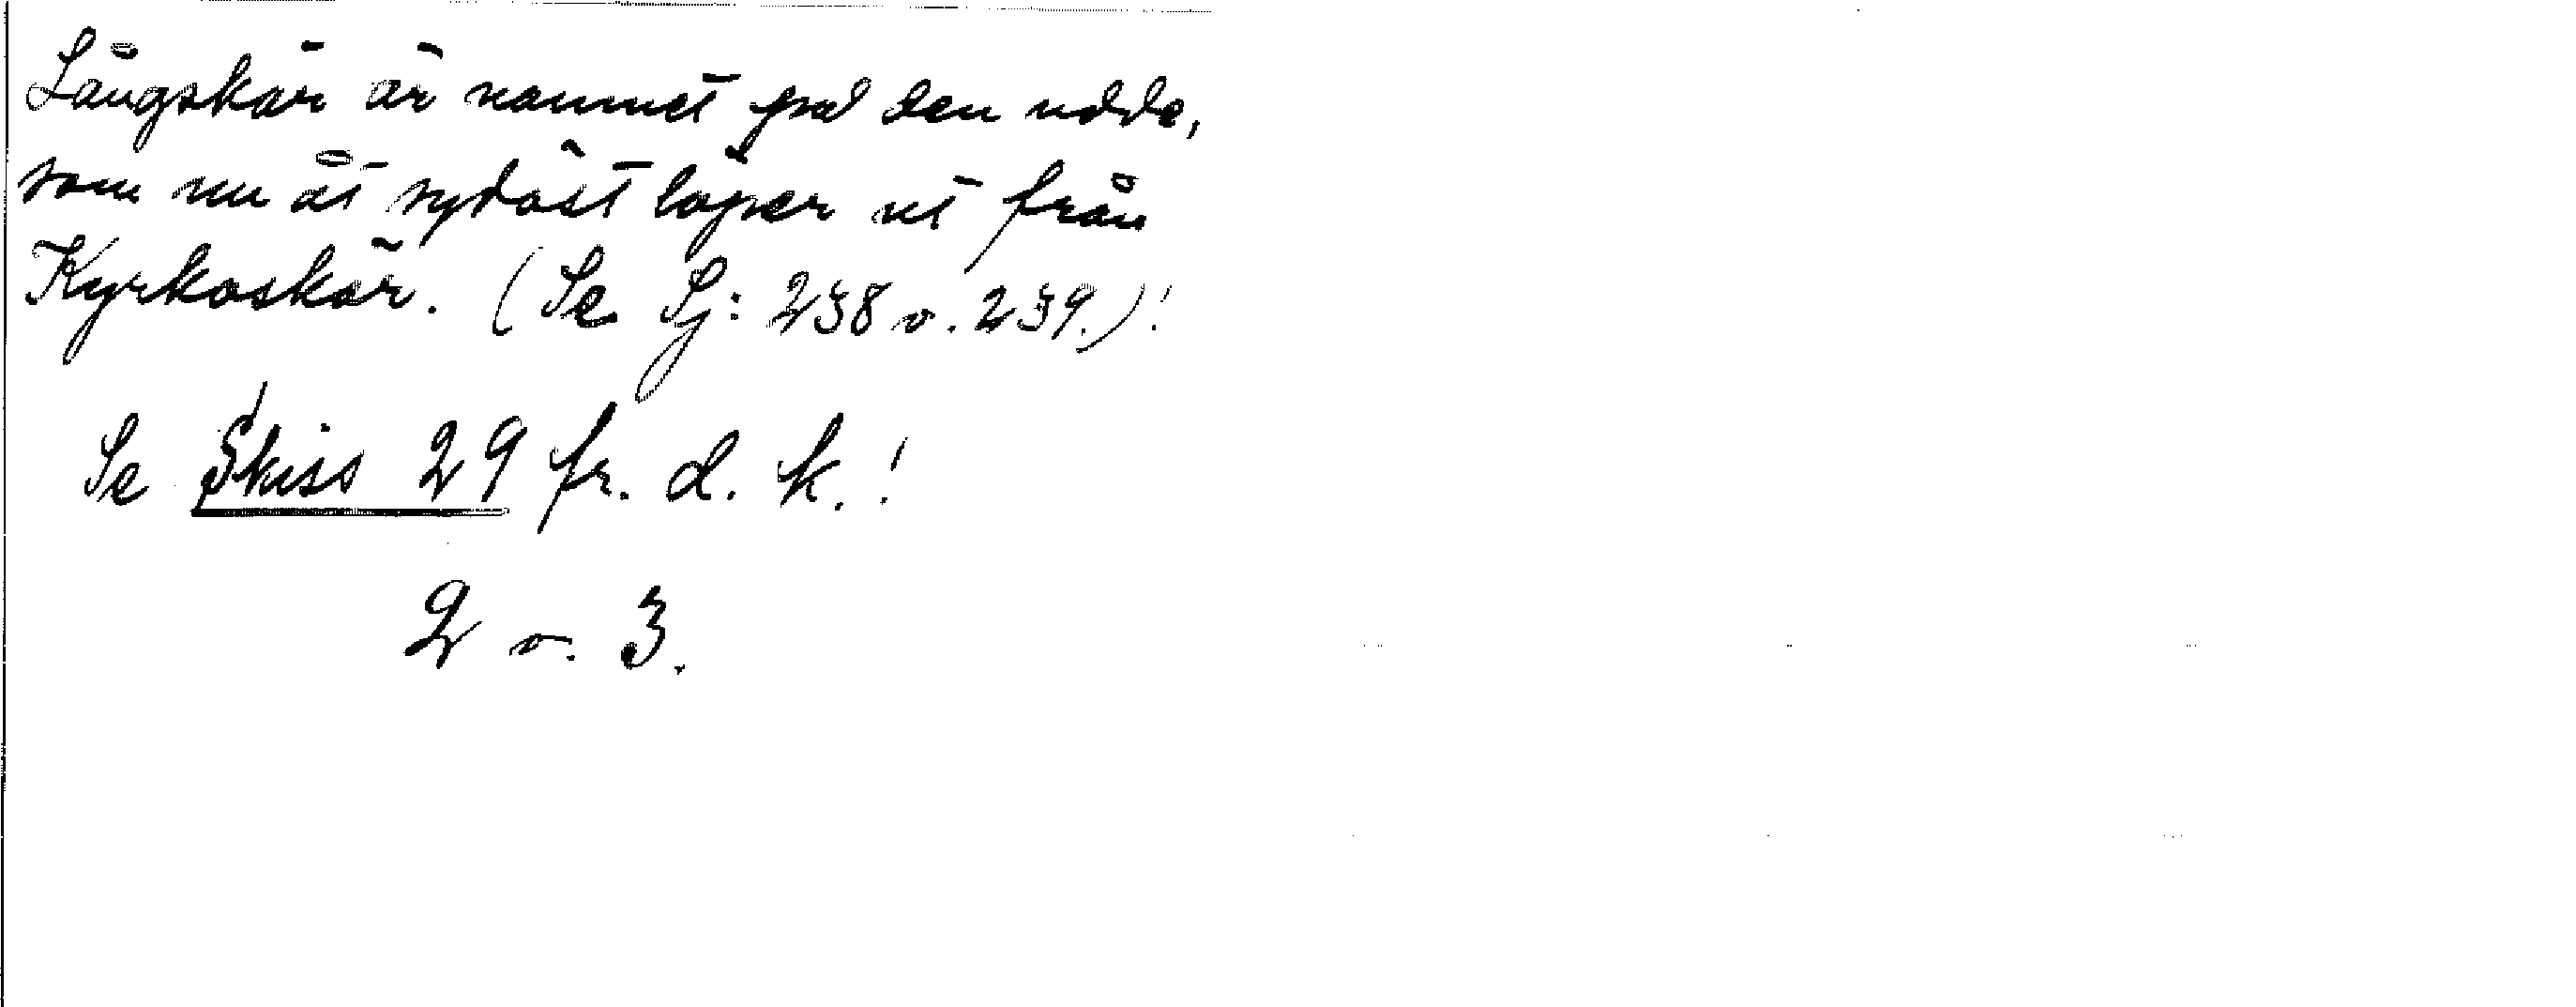 Långskär är namnet på den udde,
som nu åt sydöst löper ut från
Kyrkoskär. (Se Sj: 238 o. 239.)!
Se Skiss 29 fr. d. k.!
2 o. 3.